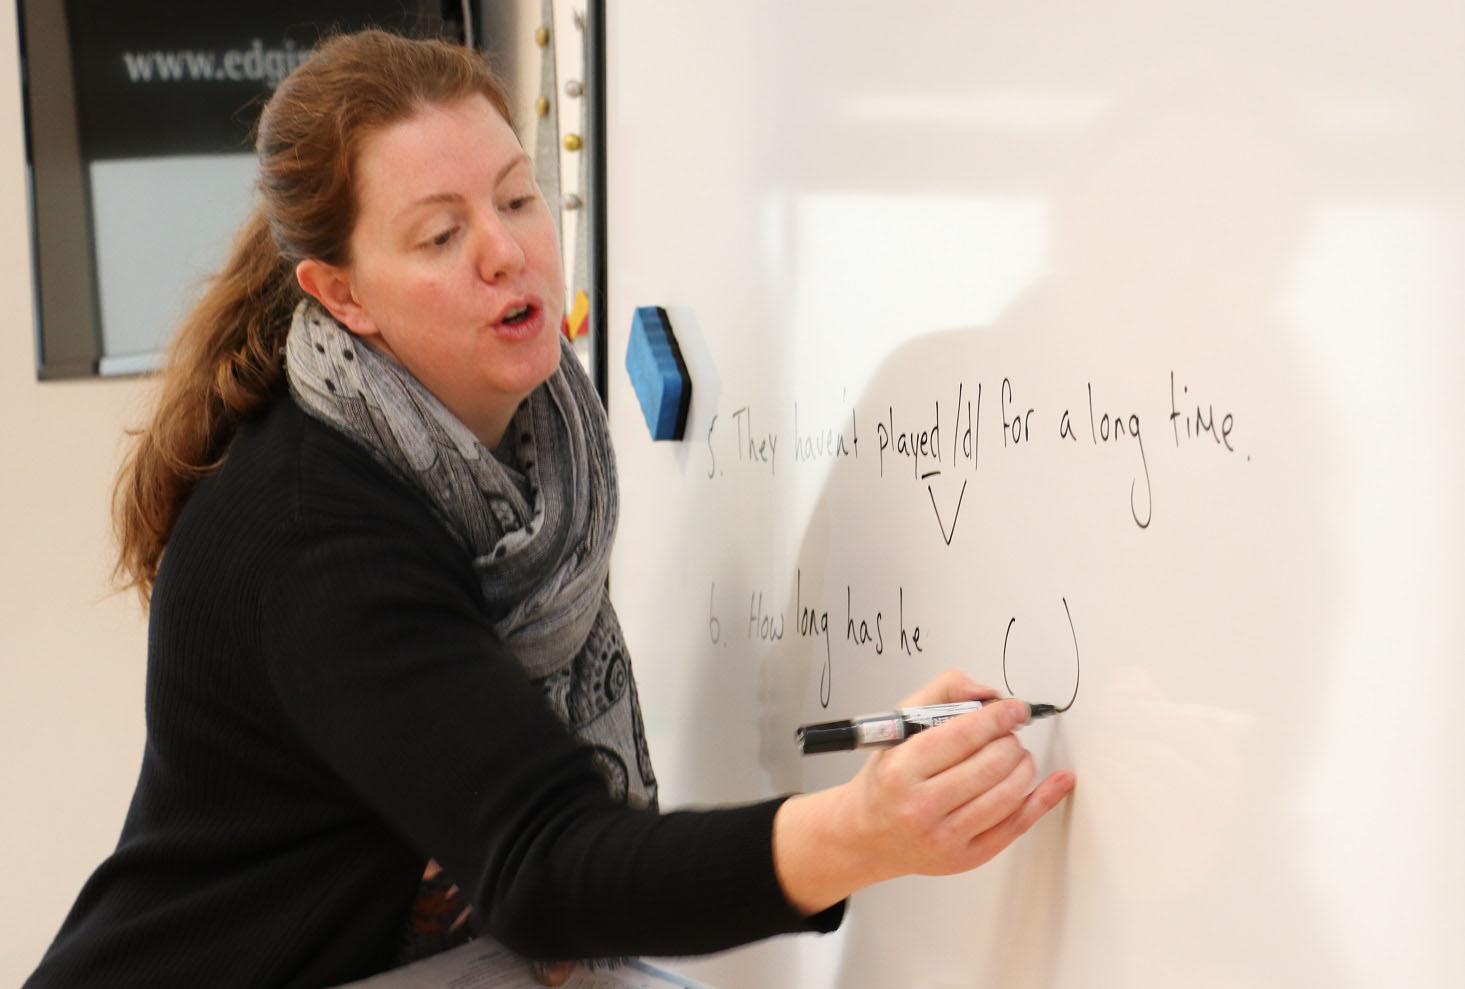 www.edgin
5. They haven't played /d/ for a long time.
V
6. How long has he ( )